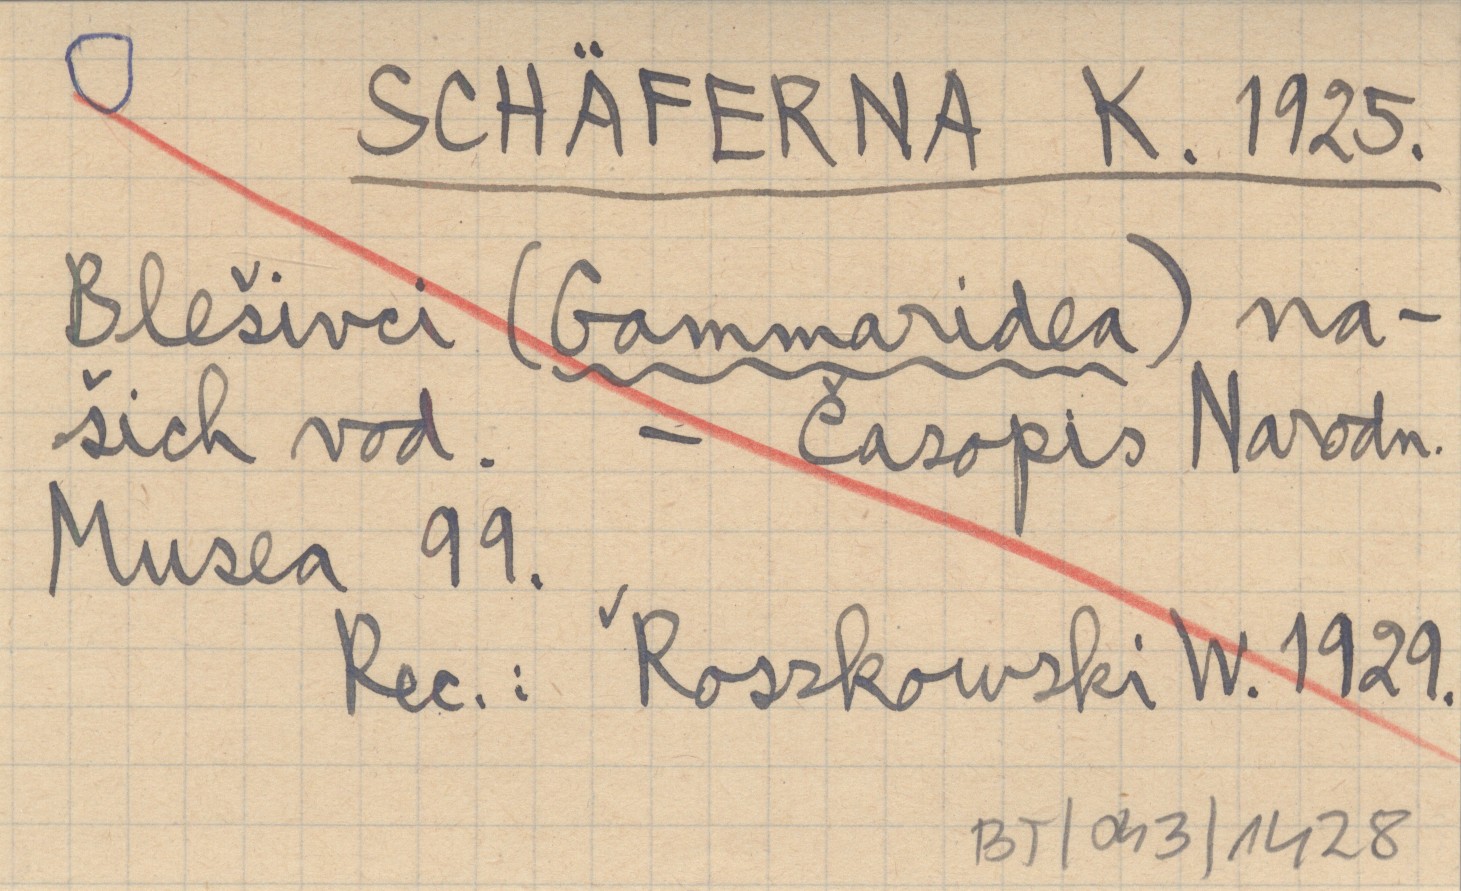 SCHÄFERNA K. 1925.
Blešivci (Gammaridea) na-
šich vod. - Časopis Narodn.
Musea 99.
Rec.: Roszkowski W. 1929.
BT/043/1428